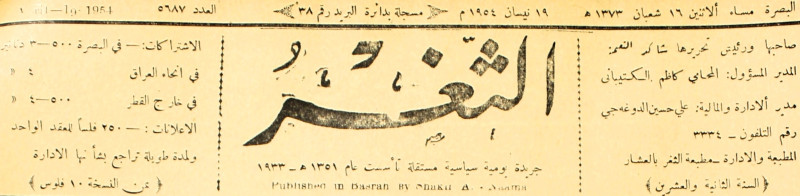 البصرة مساء ألاثنين ١٦ شعبان ١٣٧٣ هـ
١٩ نيسان ١٩٥٤ م
مسجلة بدائرة البريد رقم ٣٨
العدد ٥٦٨٧
1954
صاحبها ورئيس تحريرها شاكر النعمة
المدير المسؤول: المحامي كاظم الكتيباني
مدير ألادارة والمالية: علي حسين الدوغه جي
رقم التلفون ـ ٣٣٣٤
المطبعة والادارة ـ مطبعة الثغر بالعشار
﴿السنة الثانية والعشرين﴾
الثغر
جريدة يومية سياسية مستقلة تأسست عام ١٣٥١ هـ ـ ١٩٣٣
Published in Basrah By Shakir A.
الاشتراكات: ـ في البصرة ٥٠٠ـ٣ دنانير
في انحاء العراق ٤ «
في خارج القطر ٥٠٠ـ٤ «
الاعلانات: ـ ٢٥٠ فلساً للعقد الواحد
ولمدة طويلة تراجع بشأنها الادارة
﴿ثمن النسخة ١٠ فلوس﴾